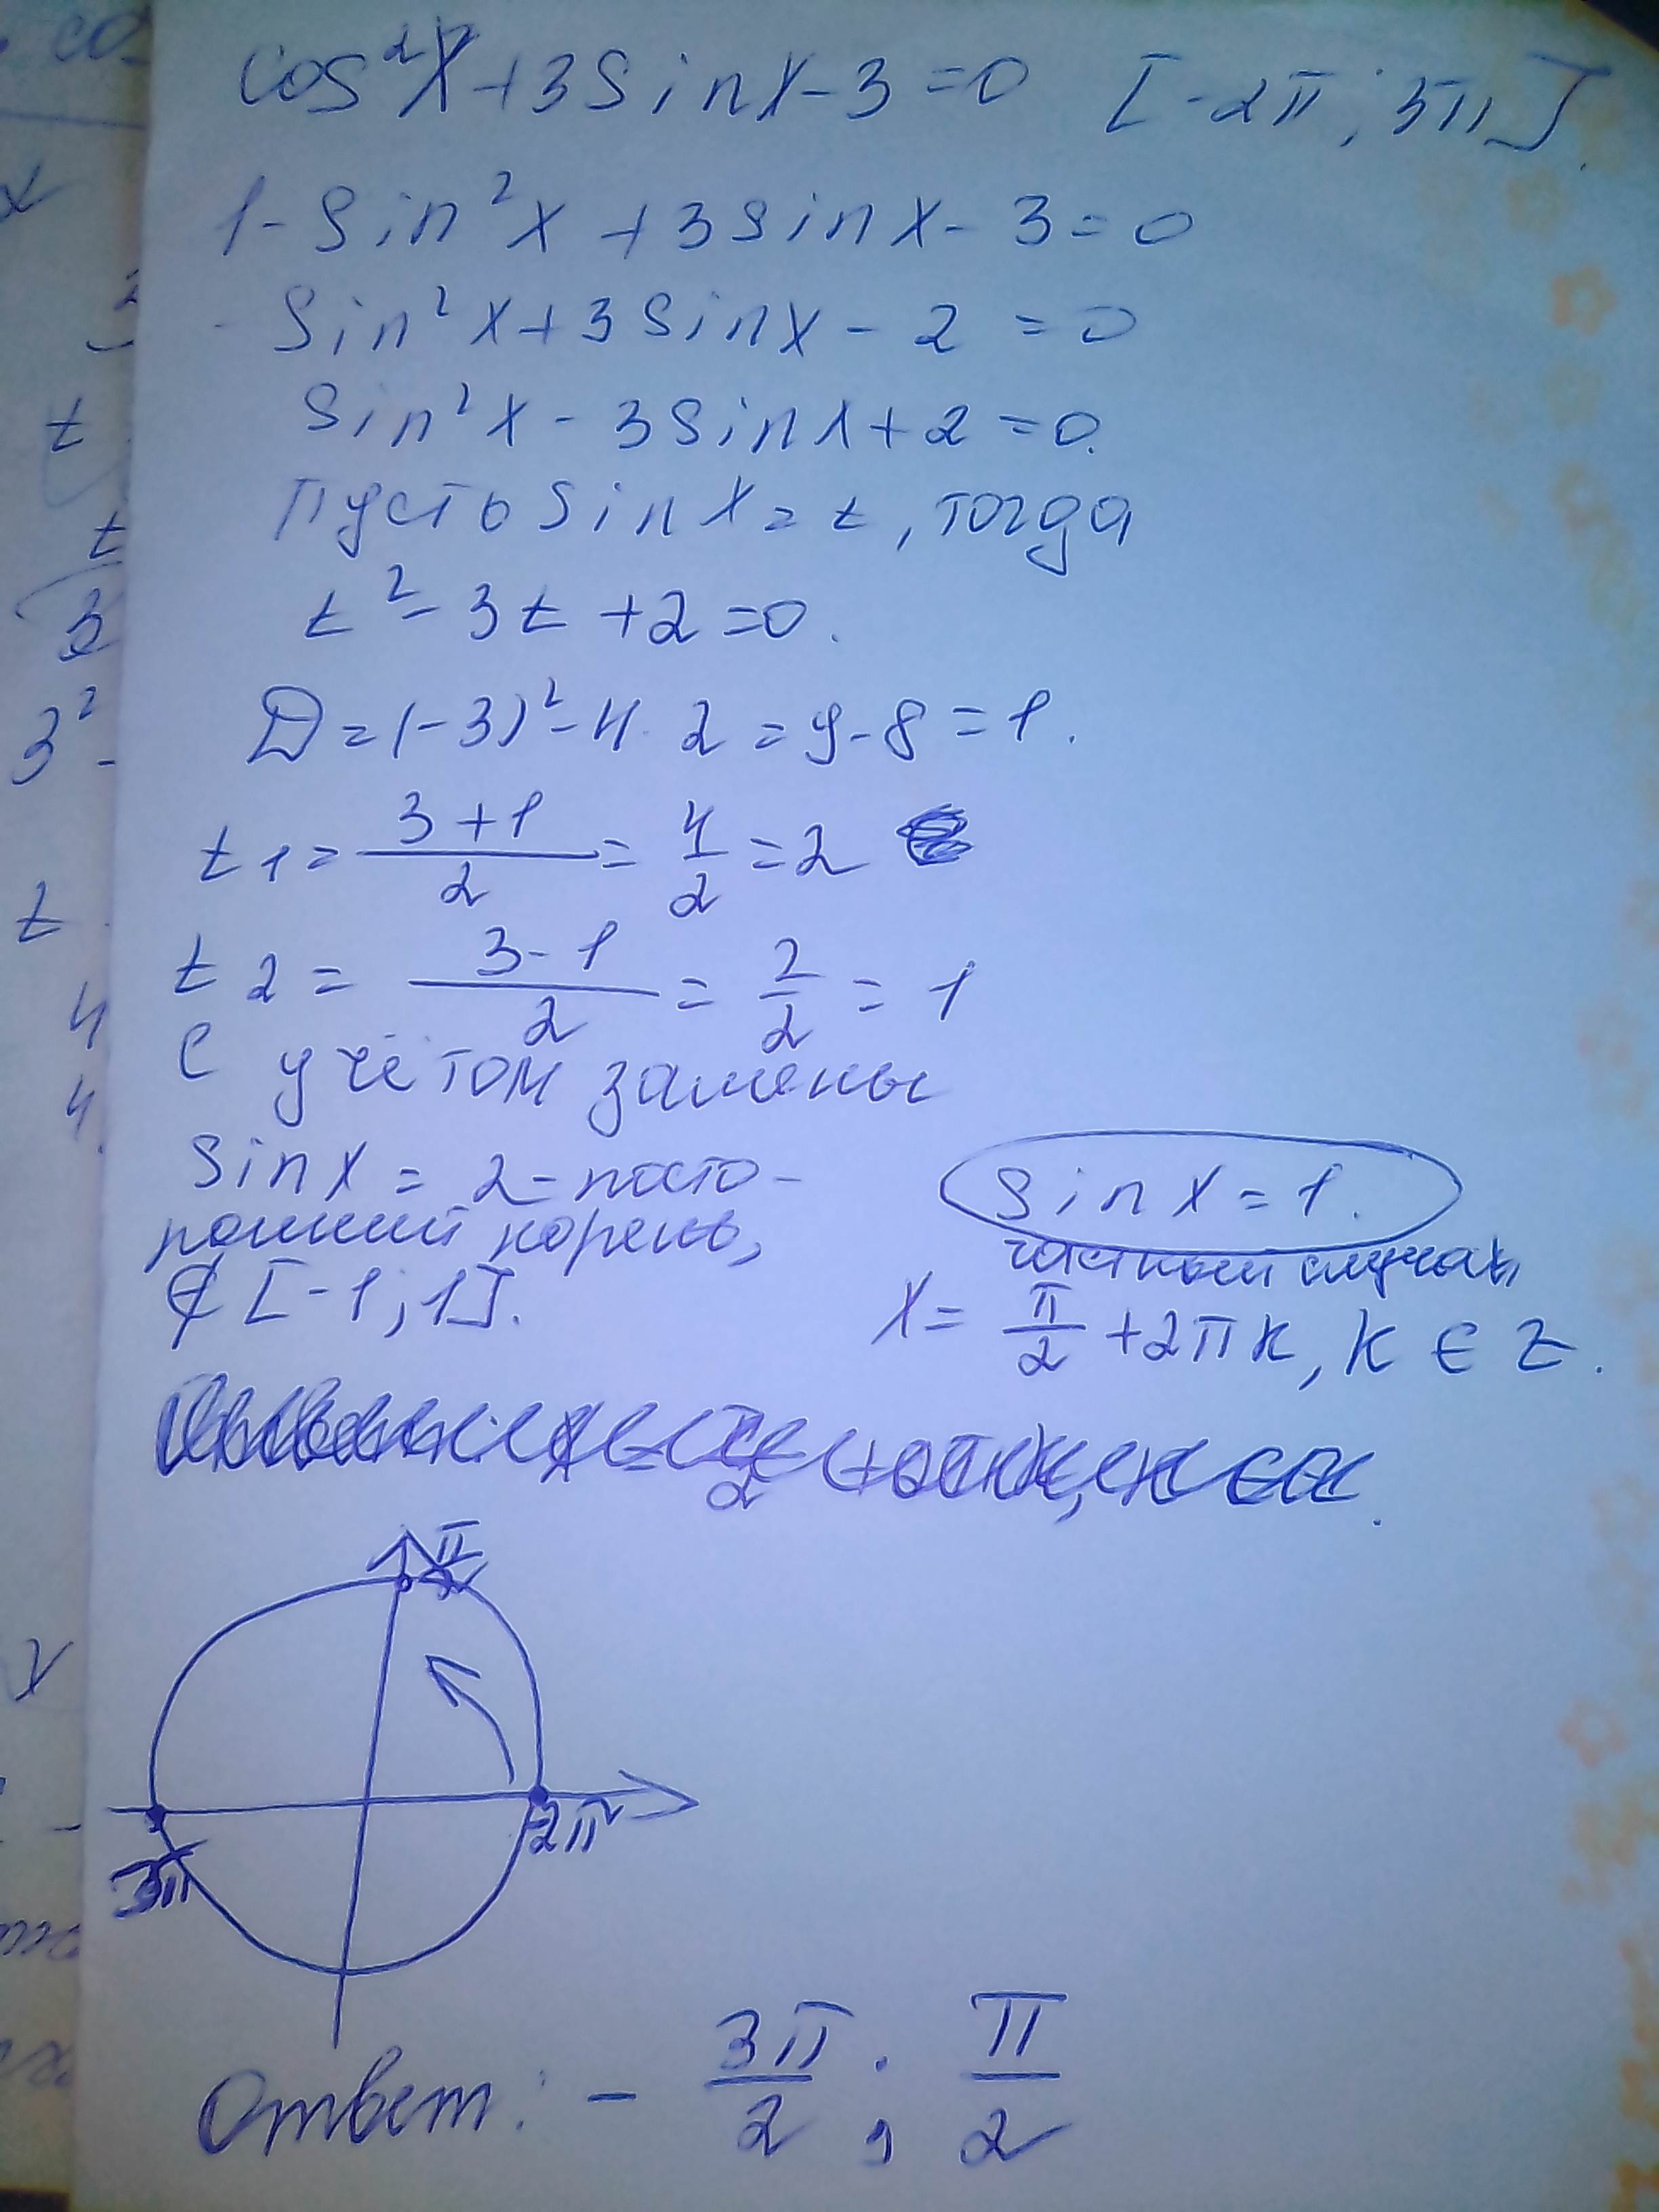 cos²x+3sinx-3=0 [-2π; 3π].
1-sin²x+3sinx-3=0
-sin²x+3sinx-2=0
sin²x-3sinx+2=0.
Пусть sinx=t, тогда
t²-3t+2=0.
D=(-3)²-4·2=9-8=1.
t1=\frac{3+1}{2}=\frac{4}{2}=2
t2=\frac{3-1}{2}=\frac{2}{2}=1
С учётом замены
sinx=2-посто-
ронний корень,
∉[-1;1].
sinx=1.
частный случай
x=\frac{π}{2}+2πk, k∈Z.
\frac{π}{2}
-2π
3π
Ответ: -\frac{3π}{2}; \frac{π}{2}